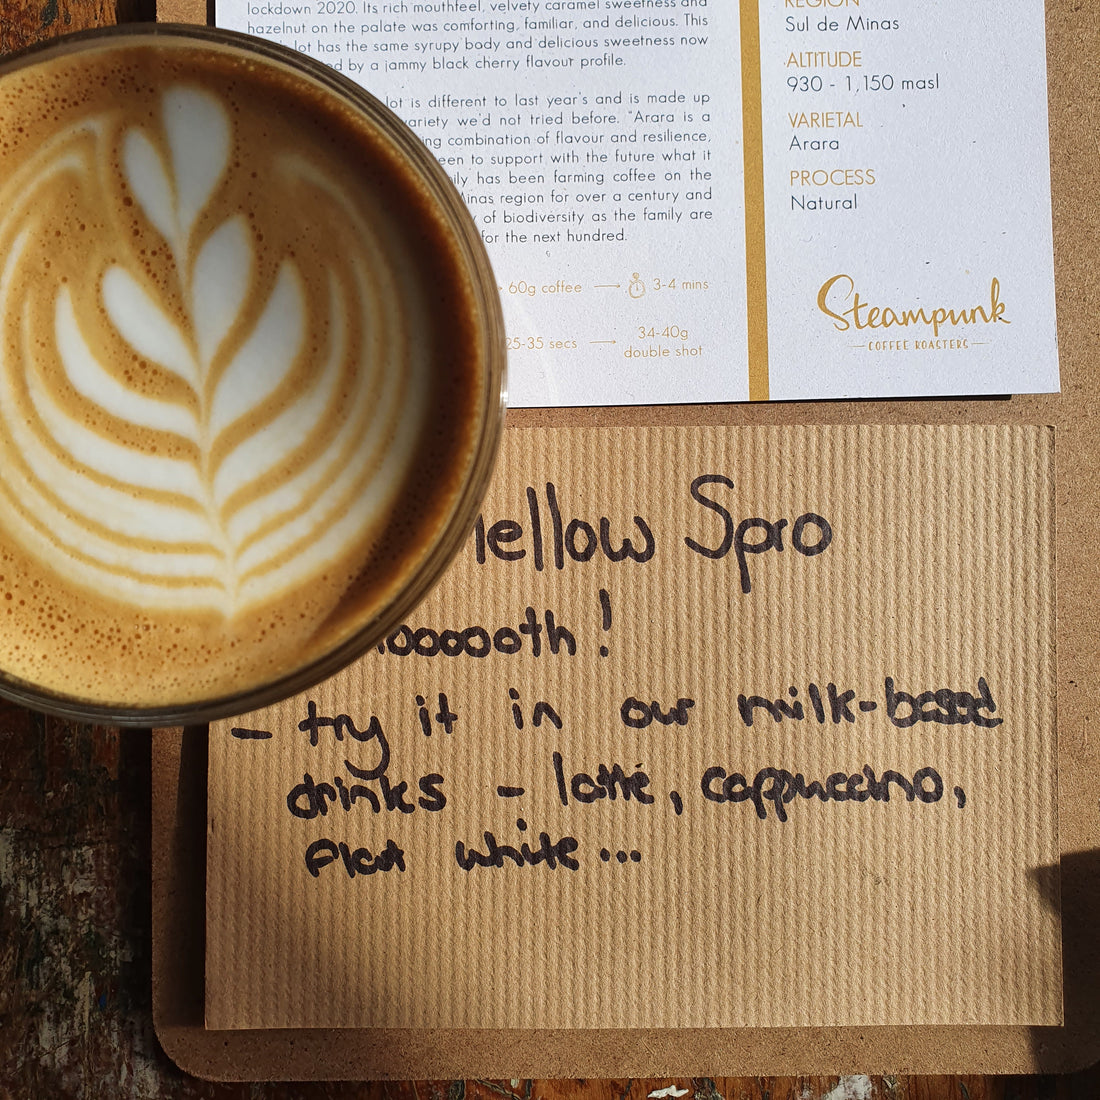 lockdown 2020. Its rich mouthfeel, velvety caramel sweetness and
hazelnut on the palate was comforting, familiar, and delicious. This
lot has the same syrupy body and delicious sweetness now
by a jammy black cherry flavour profile.
lot is different to last year's and is made up
variety we'd not tried before. "Arara is a
combination of flavour and resilience,
to support with the future what it
has been farming coffee on the
Minas region for over a century and
of biodiversity as the family are
for the next hundred.
60g coffee 3-4 mins
25-35 secs 34-40g
double shot
REGION
Sul de Minas
ALTITUDE
930 - 1,150 masl
VARIETAL
Arara
PROCESS
Natural
Steampunk
COFFEE ROASTERS
ellow Spro
ooooooth!
- try it in our milk-based
drinks - latte, cappuccino,
flat white...